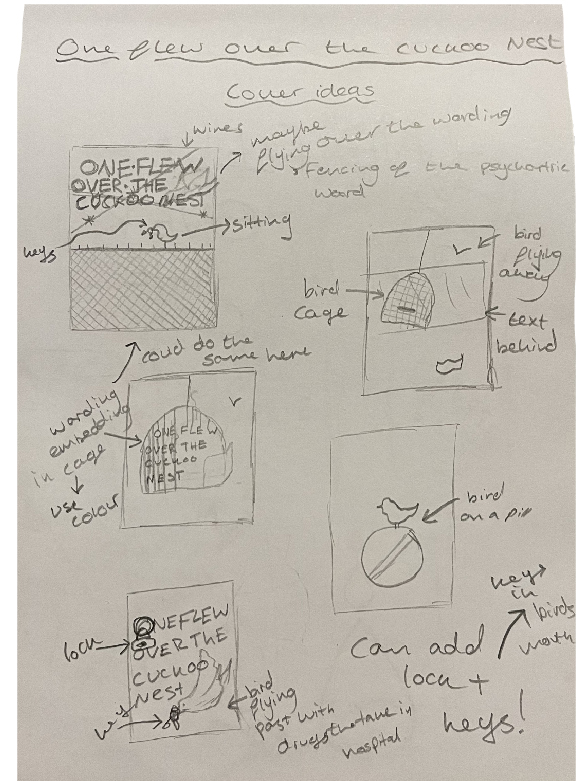 One flew over the cuckoo Nest
Cover ideas
wires
maybe
flying over the wording
Fencing of the psychartric
Woard
ONE·FLEW
OVER·THE
CUCKOO NEST
sitting
keys
bird
flying
away
bird
cage
text
behind
coud do the
same here
wording
embedding
in cage
use
colour
ONE FLEW
OVER THE
CUCKOO
NEST
bird
on a pill
key
in
birds
mouth
Can add
lock +
keys!
ONEFLEW
OVER THE
CUCKOO
Nest
lock
key
bird
flying
past with
drugs
in
hospital